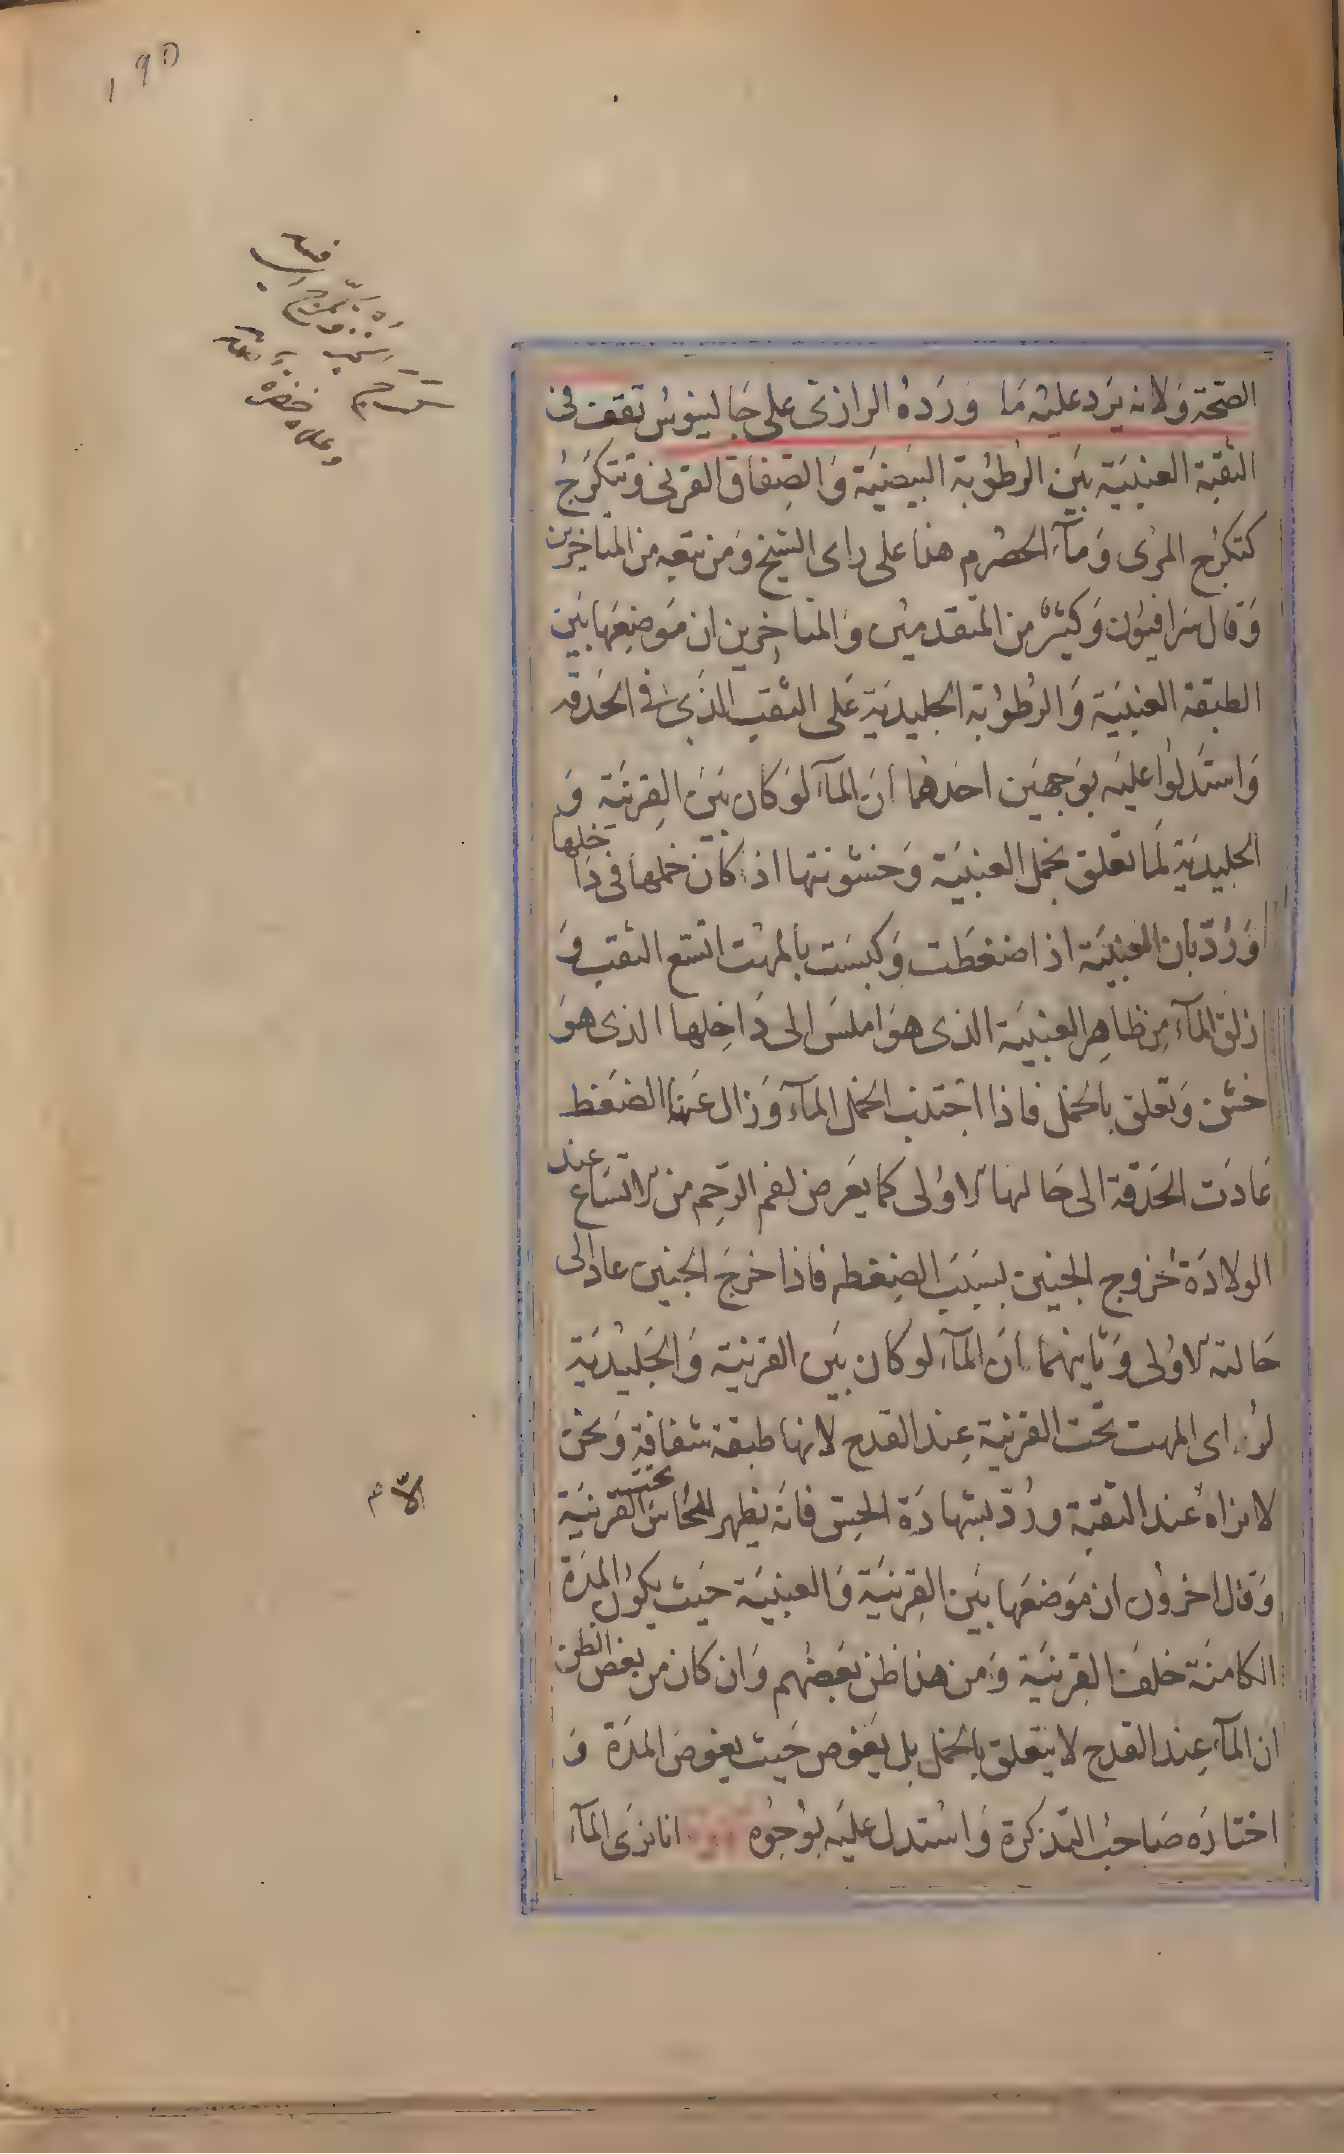 ١٩٥
الصحة ولانه يرد عليه ما ورده الرازي على جالينوس تقف في
الثقبة العنبية بين الرطوبة البيضية والصفاق القرني وتتكرج
كتكرج المري وماء الحصرم هذا على راى الشيخ ومن تبعه من المتاخرين
وقال سرافيون وكثير من المتقدمين والمتاخرين ان موضعها بين
الطبقة العنبية والرطوبة الجليدية على الثقب الذى فى الحدقه
واستدلوا عليه بوجهين احدهما ان الماء لو كان بين القرنية و
الجليدية لما تعلق بخمل العنبية وخشونتها اذ كان خملها فى داخلها
ورد بان العنبية اذا ضغطت وكبست بالمهت اتسع الثقب و
زلق الماء من ظاهر العنبية الذى هو املس الى داخلها الذى هو
خشن وتعلق بالخمل فاذا اجتذب الخمل الماء وزال عنها الضغط
عادت الحدقة الى حالها الاولى كما يعرض لفم الرحم من الاتساع عند
الولادة خروج الجنين بسبب الضغطه فاذا خرج الجنين عاد الى
حالته الاولى وثانيهما ان الماء لو كان بين القرنية والجليدية
لرءاى المهت تحت القرنية عند القدح لانها طبقة شفافة ونحن
لا نراه عند الثقبة ورد بشهادة الحس فانه يظهر للحاس تحت القرنية
وقال اخرون ان موضعها بين القرنية والعنبية حيث يكون المدة
الكامنة خلف القرنية ومن هنا ظن بعضهم وان كان من بعض الظن
ان الماء عند القدح لا يتعلق بالخمل بل يغوص حيث يغوص المدة و
اختاره صاحب التذكرة واستدل عليه بوجوه انا نرى الماء